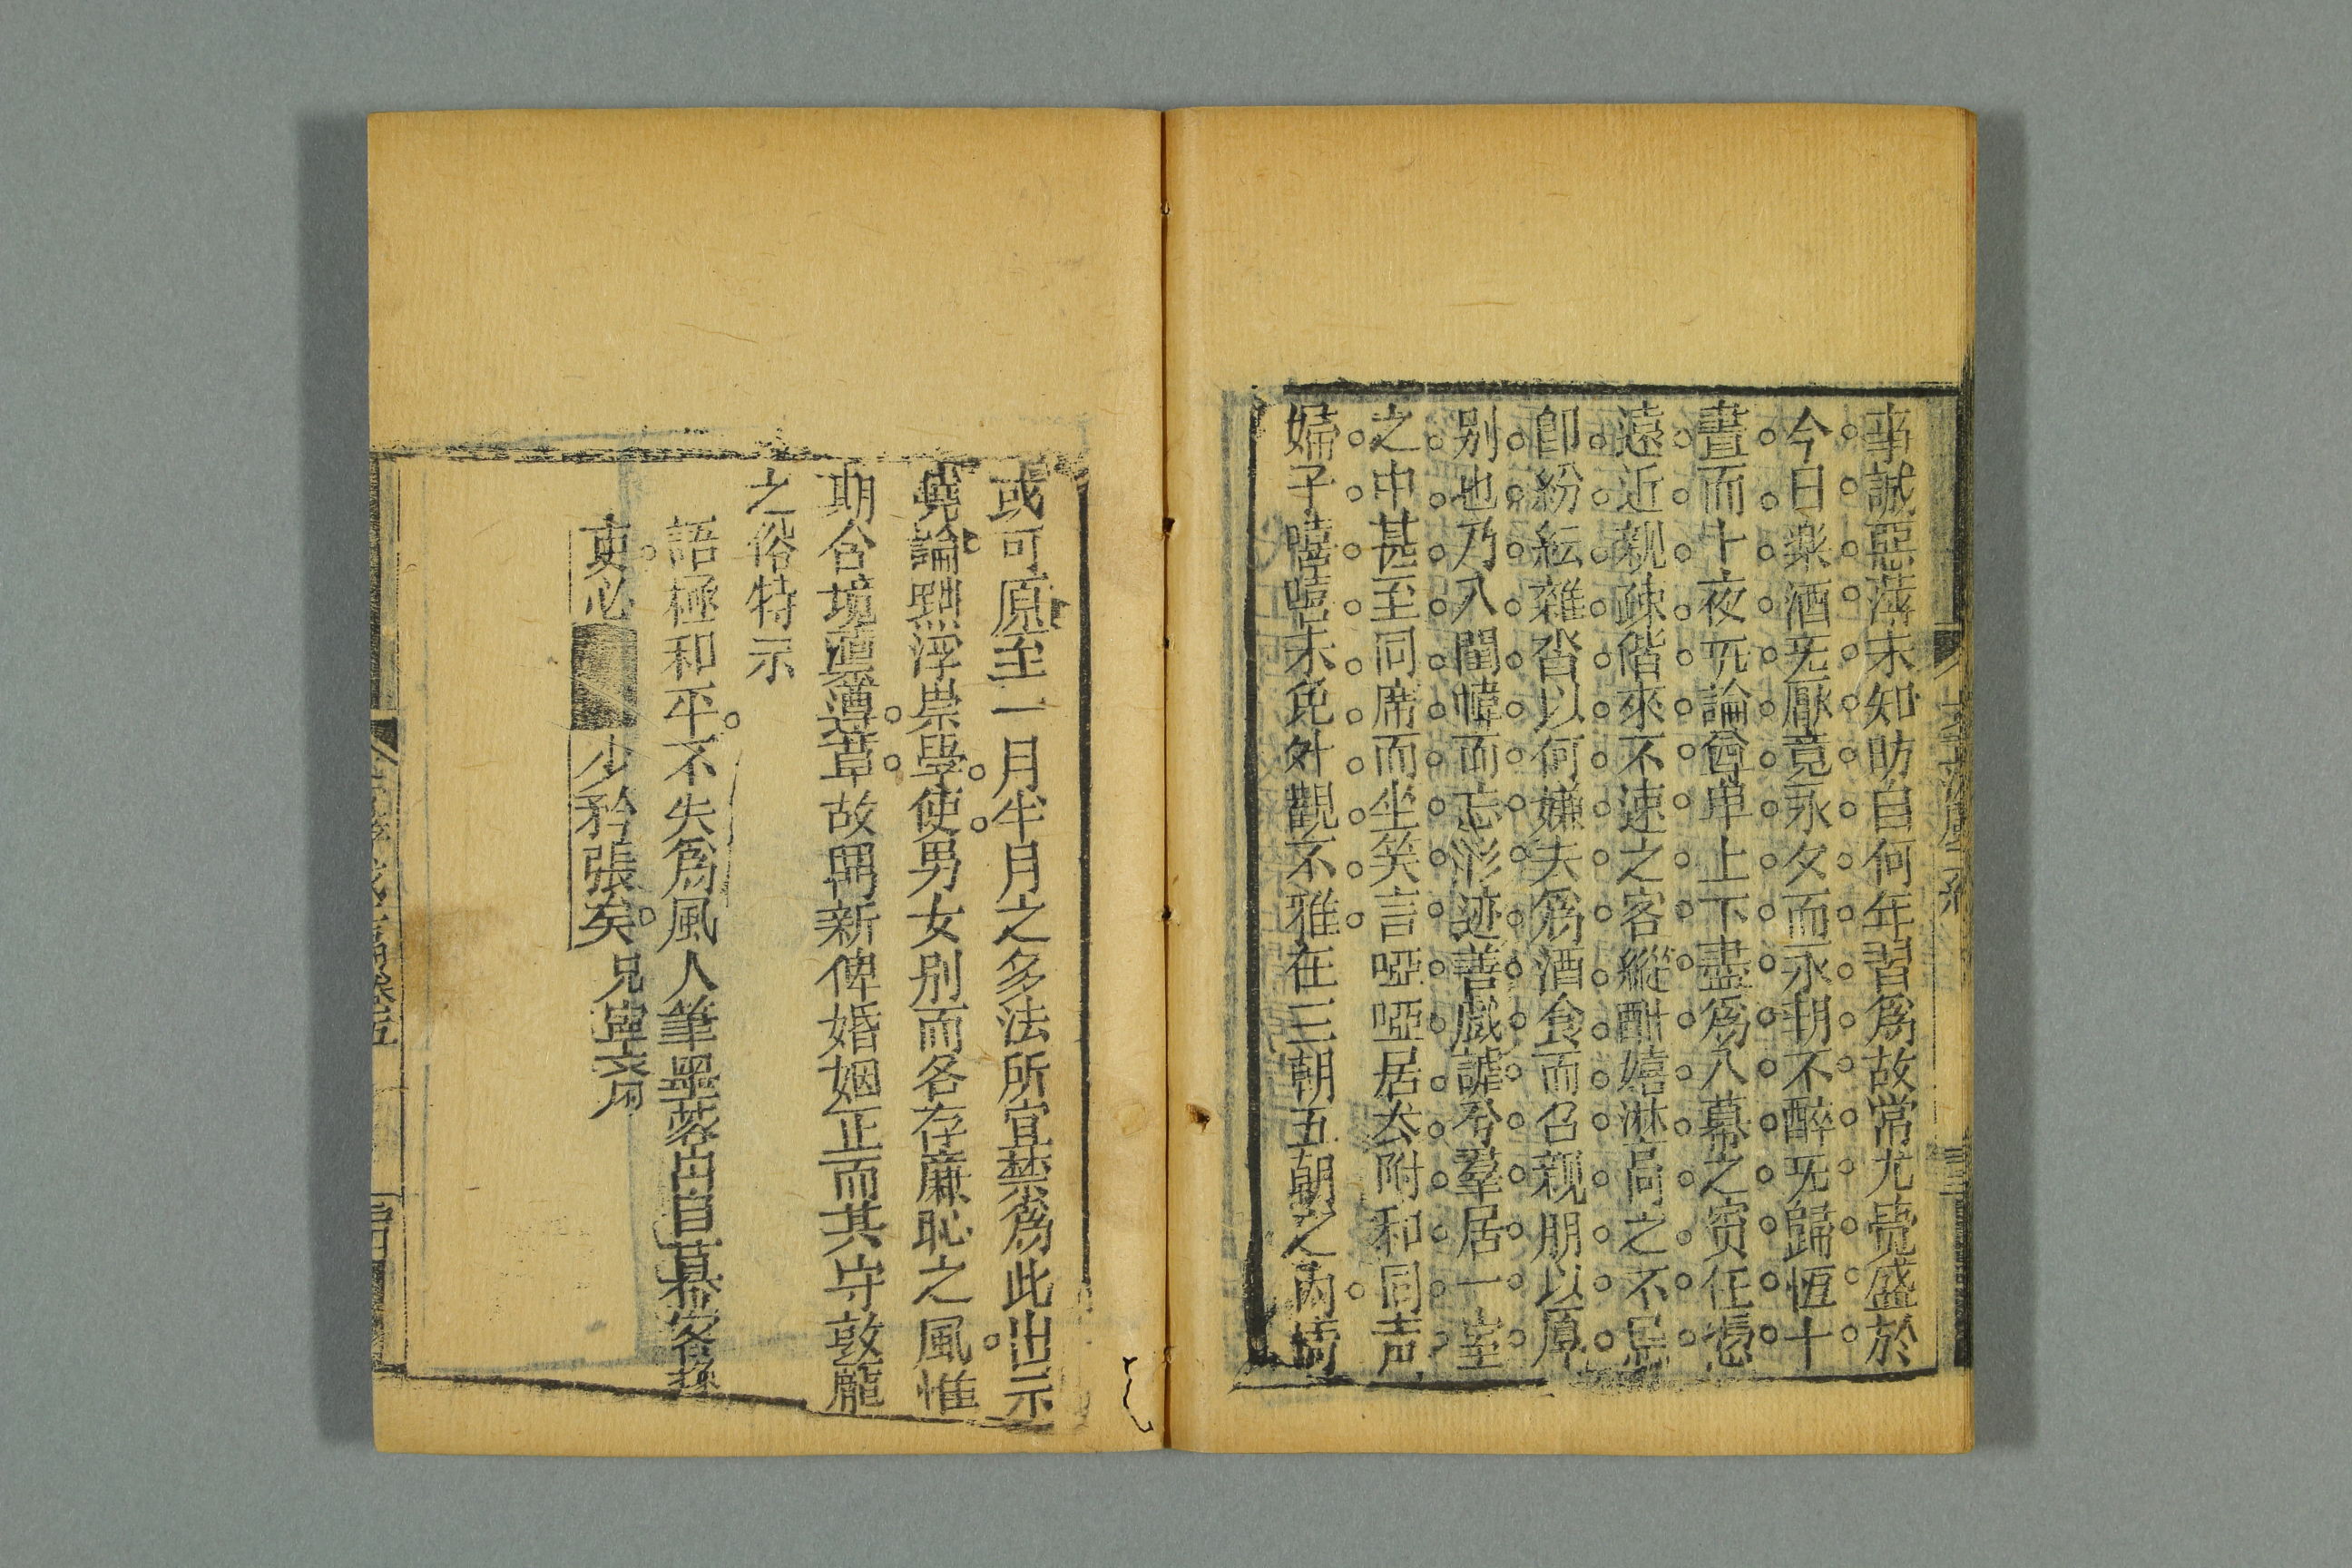 事誠惡薄未知昉自何年習爲故常尤覺盛於
今日樂酒无厭竟永夕而永朝不醉无歸恆十
晝而十夜无論尊卑上下盡爲入幕之賓任憑
遠近親疎偕來不速之客縱酣嬉淋之不忌
卽紛紜雜沓以何嫌夫爲酒食而召親朋以厚
别也乃入閨幃而忘形迹善戲謔兮羣居一室
之中甚至同席而坐笑言啞啞居然附和同声
婦子嘻嘻未免外觀不雅在三朝五朝之内猶
或可原至一月半月之多法所宜禁爲此出示
曉諭黜浮崇學使男女别而各存廉恥之風惟
期合境蕙遵革故開新俾婚姻正而共守敦龐
之俗特示
語極和平不失爲風人筆墨蓉由自慕客
吏必 少矜張矣 兄寅齋